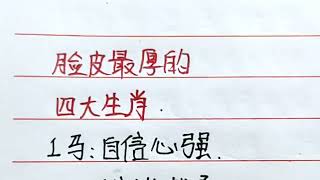 脸皮最厚的
四大生肖.
1马:自信心强.